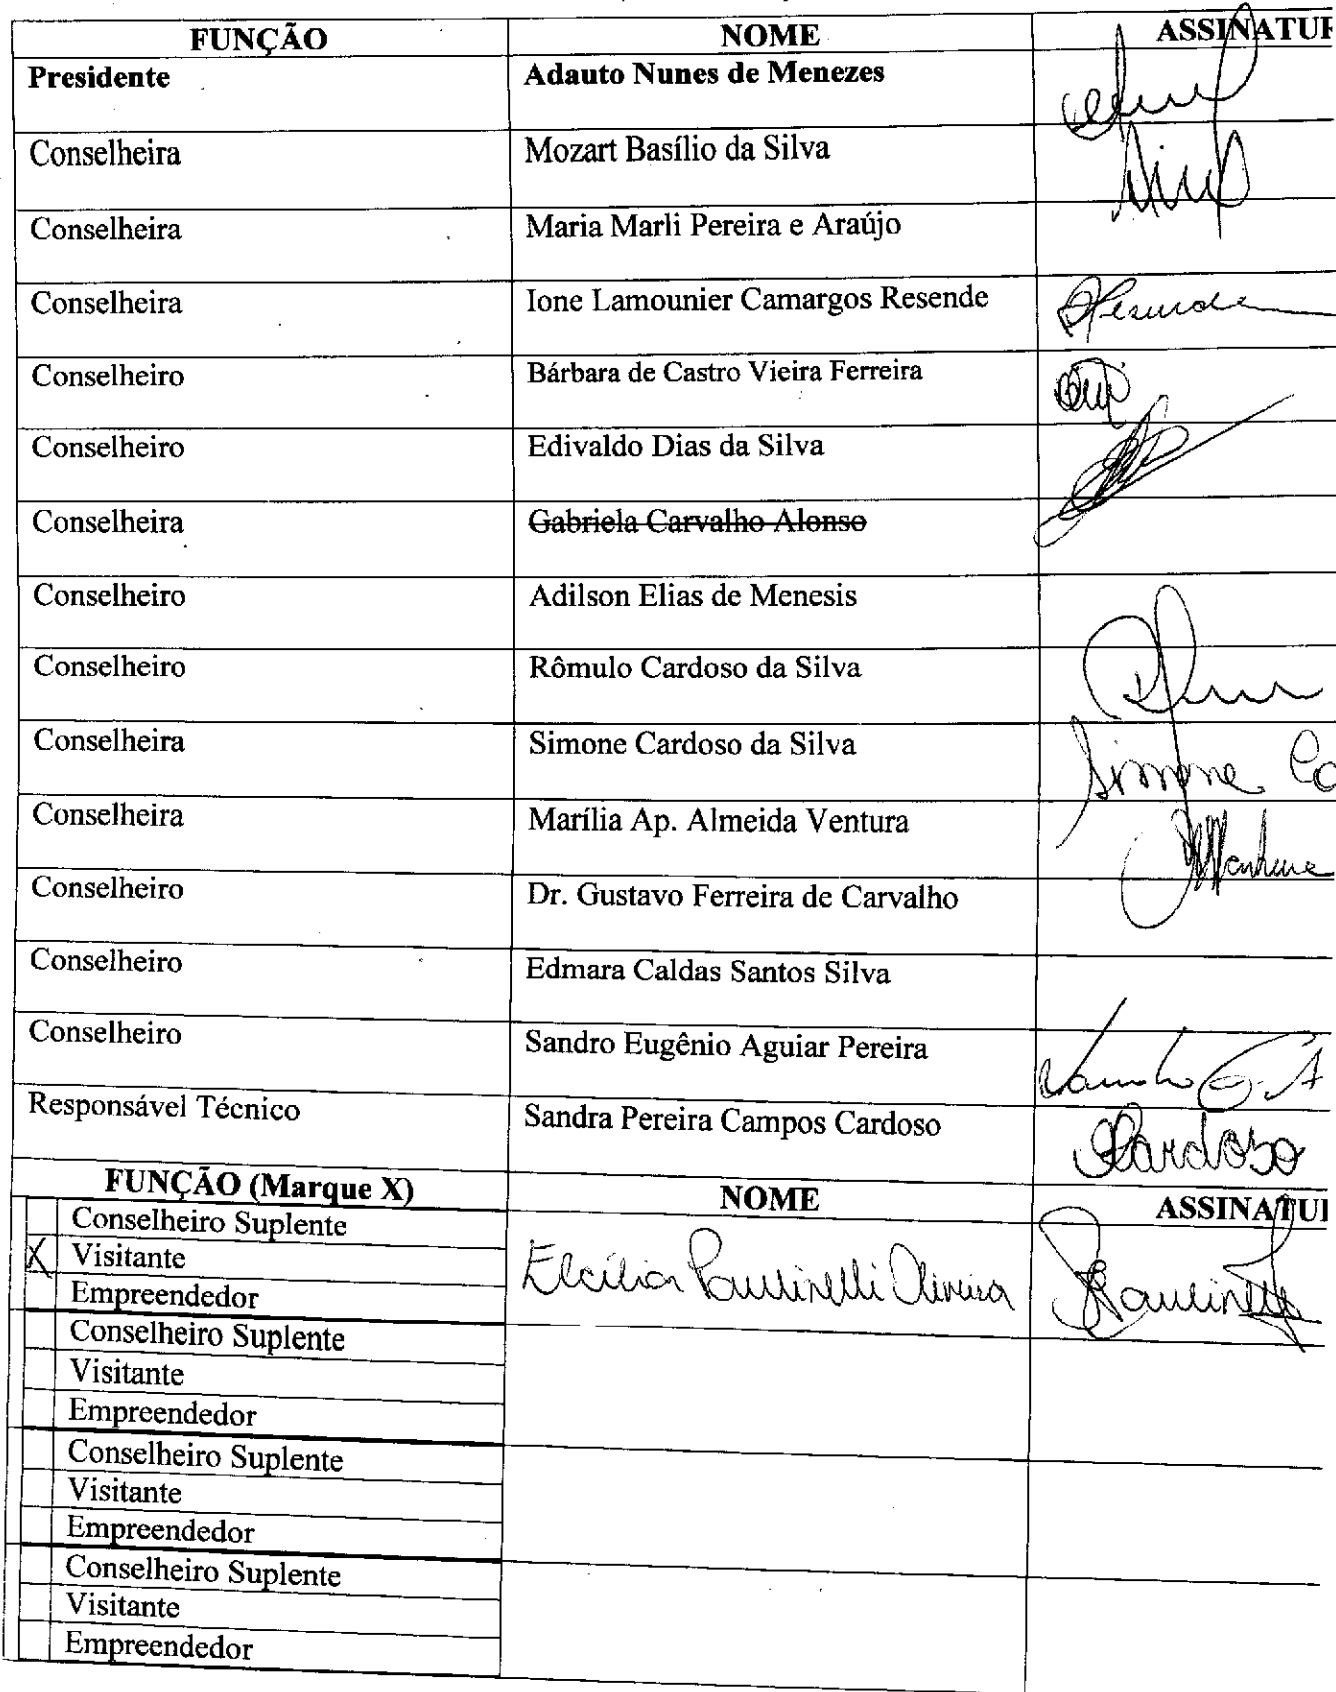 FUNÇÃO NOME ASSINATUR
Presidente Adauto Nunes de Menezes
Conselheira Mozart Basílio da Silva
Conselheira Maria Marli Pereira e Araújo
Conselheira Ione Lamounier Camargos Resende
Conselheiro Bárbara de Castro Vieira Ferreira
Conselheiro Edivaldo Dias da Silva
Conselheira Gabriela Carvalho Alonso
Conselheiro Adilson Elias de Menesis
Conselheiro Rômulo Cardoso da Silva
Conselheira Simone Cardoso da Silva Simone Ca
Conselheira Marília Ap. Almeida Ventura
Conselheiro Dr. Gustavo Ferreira de Carvalho
Conselheiro Edmara Caldas Santos Silva
Conselheiro Sandro Eugênio Aguiar Pereira
Responsável Técnico Sandra Pereira Campos Cardoso Cardoso
FUNÇÃO (Marque X) NOME ASSINATUR
Conselheiro Suplente
X Visitante Elcília Paulinelli Oliveira
Empreendedor
Conselheiro Suplente
Visitante
Empreendedor
Conselheiro Suplente
Visitante
Empreendedor
Conselheiro Suplente
Visitante
Empreendedor